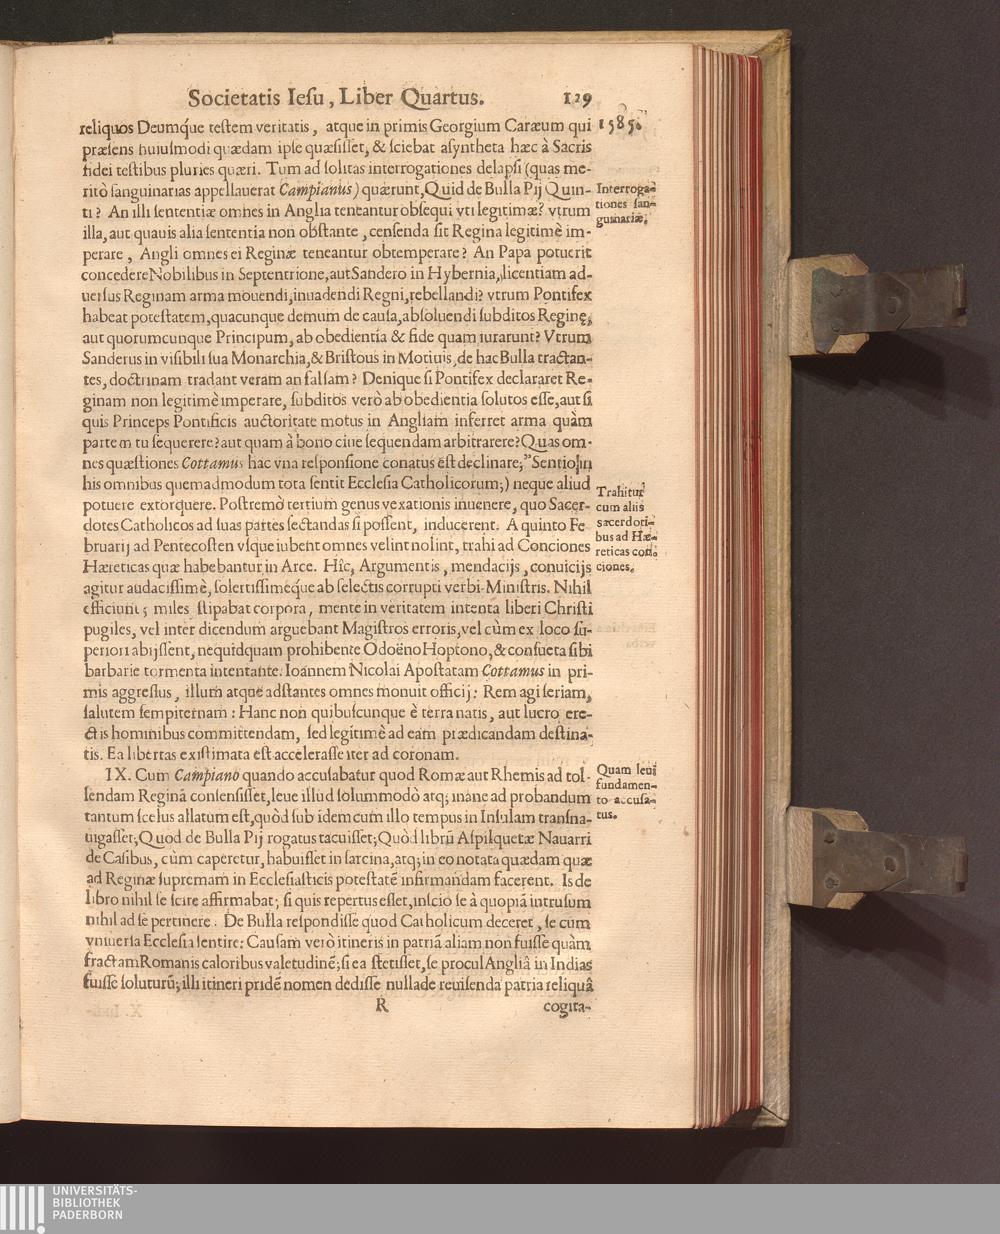 Societatis Iesu, Liber Quartus. 129
reliquos Deumq́ue testem veritatis, atque in primis Georgium Caræum qui
1585.
præsens huiusmodi quædam ipse quæsisset, & sciebat asyntheta hæc à Sacris
fidei testibus pluries quæri. Tum ad solitas interrogationes delapsi (quas me-
ritò sanguinarias appellauerat Campianus) quærunt, Quid de Bulla Pij Quin-
ti? An illi sententiæ omnes in Anglia teneantur obsequi vti legitimæ? vtrum
illa, aut quauis alia sententia non obstante, censenda sit Regina legitimè im-
Interroga-
tiones san-
guinariæ.
perare, Angli omnes ei Reginæ teneantur obtemperare? An Papa potuerit
concedere Nobilibus in Septentrione, aut Sandero in Hybernia, licentiam ad-
uersus Reginam arma mouendi, inuadendi Regni, rebellandi? vtrum Pontifex
habeat potestatem, quacunque demum de causa, absoluendi subditos Reginę,
aut quorumcunque Principum, ab obedientia & fide quam iurarunt? Vtrum
Sanderus in visibili sua Monarchia, & Bristous in Motiuis, de hac Bulla tractan-
tes, doctrinam tradant veram an falsam? Denique si Pontifex declararet Re-
ginam non legitimè imperare, subditos verò ab obedientia solutos esse, aut si
quis Princeps Pontificis auctoritate motus in Angliam inferret arma quàm
partem tu sequerere? aut quam à bono ciue sequendam arbitrarere? Quas om-
nes quæstiones Cottamus hac vna responsione conatus est declinare; "Sentio in
his omnibus quemadmodum tota sentit Ecclesia Catholicorum;) neque aliud
potuere extorquere. Postremò tertium genus vexationis inuenere, quo Sacer-
dotes Catholicos ad suas partes sectandas si possent, inducerent. A quinto Fe
bruarij ad Pentecosten vsque iubent omnes velint nolint, trahi ad Conciones
Hæreticas quæ habebantur in Arce. Hîc, Argumentis, mendacijs, conuicijs
Trahitur
cum aliis
sacerdoti-
bus ad Hæ-
reticas con-
ciones.
agitur audacissimè, solertissimeq́ue ab selectis corrupti verbi Ministris. Nihil
efficiunt; miles stipabat corpora, mente in veritatem intenta liberi Christi
pugiles, vel inter dicendum arguebant Magistros erroris, vel cùm ex loco su-
periori abijssent, nequidquam prohibente Odoëno Hoptono, & consueta sibi
barbarie tormenta intentante. Ioannem Nicolai Apostatam Cottamus in pri-
mis aggressus, illum atque adstantes omnes monuit officij: Rem agi seriam,
salutem sempiternam: Hanc non quibuscunque è terra natis, aut lucro ere-
ctis hominibus committendam, sed legitimè ad eam prædicandam destina-
tis. Ea libertas existimata est accelerasse iter ad coronam.
IX. Cum Campiano quando accusabatur quod Romæ aut Rhemis ad tol-
lendam Reginã consensisset, leue illud solummodò atq; inane ad probandum
tantum scelus allatum est, quòd sub idem cum illo tempus in Insulam transna-
Quam leui
fundamen-
to accusa-
tus.
uigasset; Quod de Bulla Pij rogatus tacuisset; Quòd librũ Aspilquetæ Nauarri
de Casibus, cùm caperetur, habuisset in sarcina, atq; in eo notata quædam quæ
ad Reginæ supremam in Ecclesiasticis potestatẽ infirmandam facerent. Is de
libro nihil se scire affirmabat; si quis repertus esset, inscio se à quopiã intrusum
nihil ad se pertinere. De Bulla respondisse quod Catholicum deceret, se cum
vniuersa Ecclesia sentire: Causam verò itineris in patriã aliam non fuisse quàm
fractam Romanis caloribus valetudinẽ; si ea stetisset, se procul Angliâ in Indias
fuisse soluturũ; illi itineri pridẽ nomen dedisse nulla de reuisenda patria reliquâ
R cogita-
UNIVERSITÄTS-
BIBLIOTHEK
PADERBORN